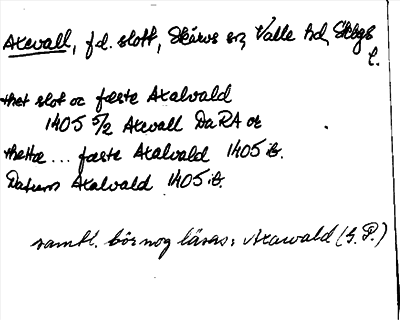 Axevall, f.d. slott, Skärvs sn, Valle hd, Skbgs
l.
thet slot oc fæste Axalvald
1405 5/2 Axevall DaRA or
thetta ... fæste Axalvald 1405 ib.
Datum Axalvald 1405 ib.
samtl. bör nog läsas: Axawald (G.P.)